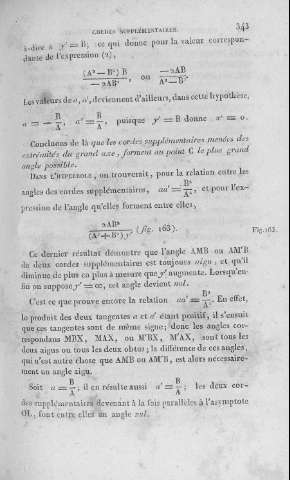 CORDES SUPPLÉMENTAIRES. 343
à-dire à y' = B; ce qui donne pour la valeur correspon-
dante de l'expression (2),
(A² — B²) B / — 2AB², ou — 2AB / A² — B².
Les valeurs de a, a', deviennent d'ailleurs, dans cette hypothèse,
a = — B/A, a' = B/A, puisque y' = B donne x' = 0.
Concluons de là que les cordes supplémentaires menées des
extrémités du grand axe, forment au point C le plus grand
angle possible.
DANS L'HYPERBOLE, on trouverait, pour la relation entre les
angles des cordes supplémentaires, aa' = B²/A², et pour l'ex-
pression de l'angle qu'elles forment entre elles,
2AB² / (A² + B²) y' (fig. 163). Fig. 163.
Ce dernier résultat démontre que l'angle AMB ou AM'B
de deux cordes supplémentaires est toujours aigu, et qu'il
diminue de plus en plus à mesure que y' augmente. Lorsqu'en-
fin on suppose y' = ∞, cet angle devient nul.
C'est ce que prouve encore la relation aa' = B²/A². En effet,
le produit des deux tangentes a et a' étant positif, il s'ensuit
que ces tangentes sont de même signe; donc les angles cor-
respondans MBX, MAX, ou M'BX, M'AX, sont tous les
deux aigus ou tous les deux obtus; la différence de ces angles,
qui n'est autre chose que AMB ou AM'B, est alors nécessaire-
ment un angle aigu.
Soit a = B/A, il en résulte aussi a' = B/A; les deux cor-
des supplémentaires devenant à la fois parallèles à l'asymptote
OL, font entre elles un angle nul.